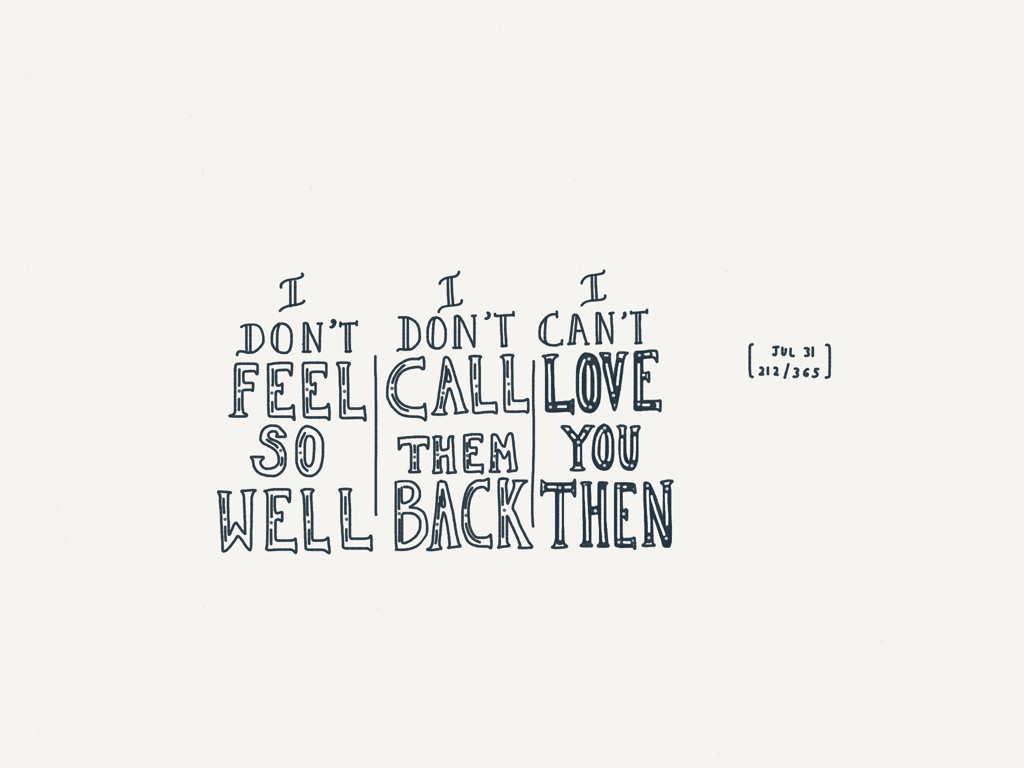 I
DON'T
FEEL
SO
WELL
I
DON'T
CALL
THEM
BACK
I
CAN'T
LOVE
YOU
THEN
[ JUL 31
212/365 ]